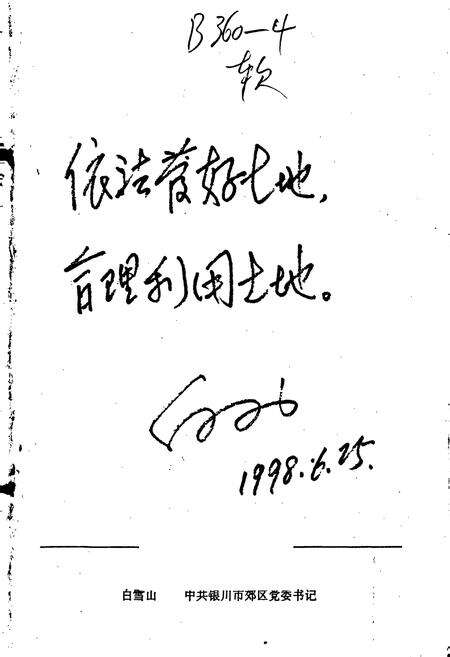 B360-4
软
依法管好土地,
合理利用土地。
1998.6.25.
白雪山 中共银川市郊区党委书记